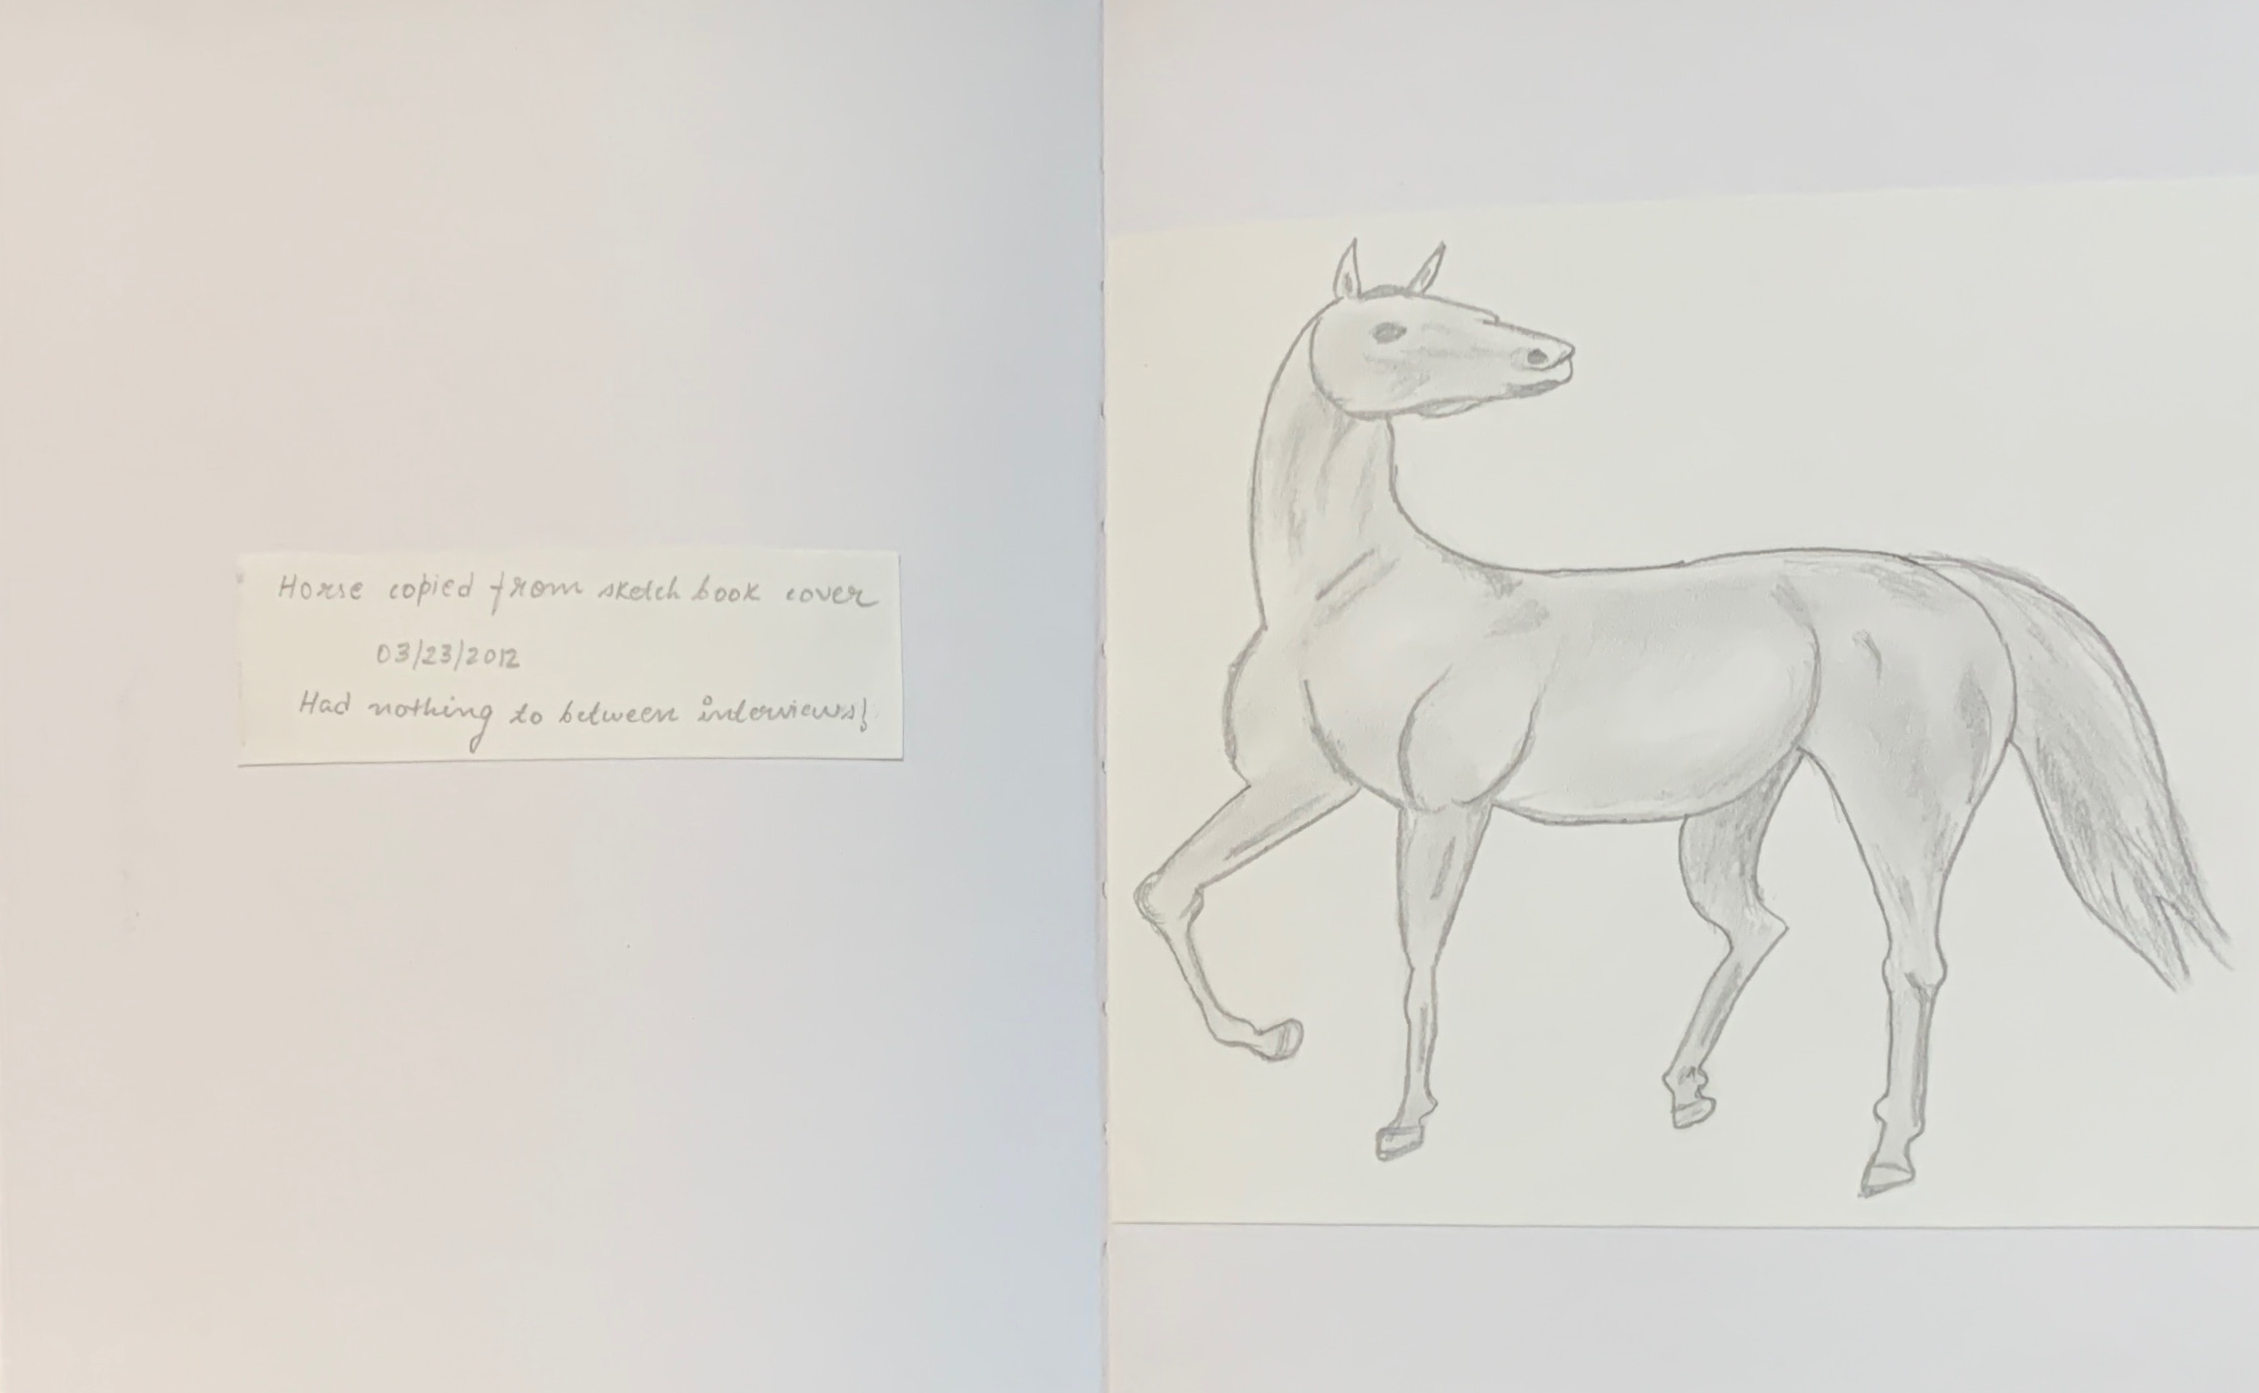 Horse copied from sketch book cover
03/23/2012
Had nothing to between interviews!